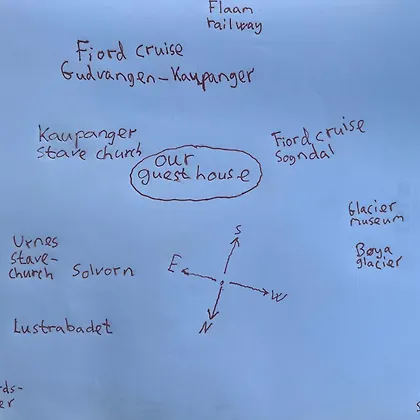 Flaam
railway
Fiord cruise
Gudvangen-Kaupanger
Kaupanger
stave church
our
guest house
Fiord cruise
Sogndal
Glacier
museum
Bøya
glacier
Urnes
stave-
church Solvorn
Lustrabadet
S
E
W
N